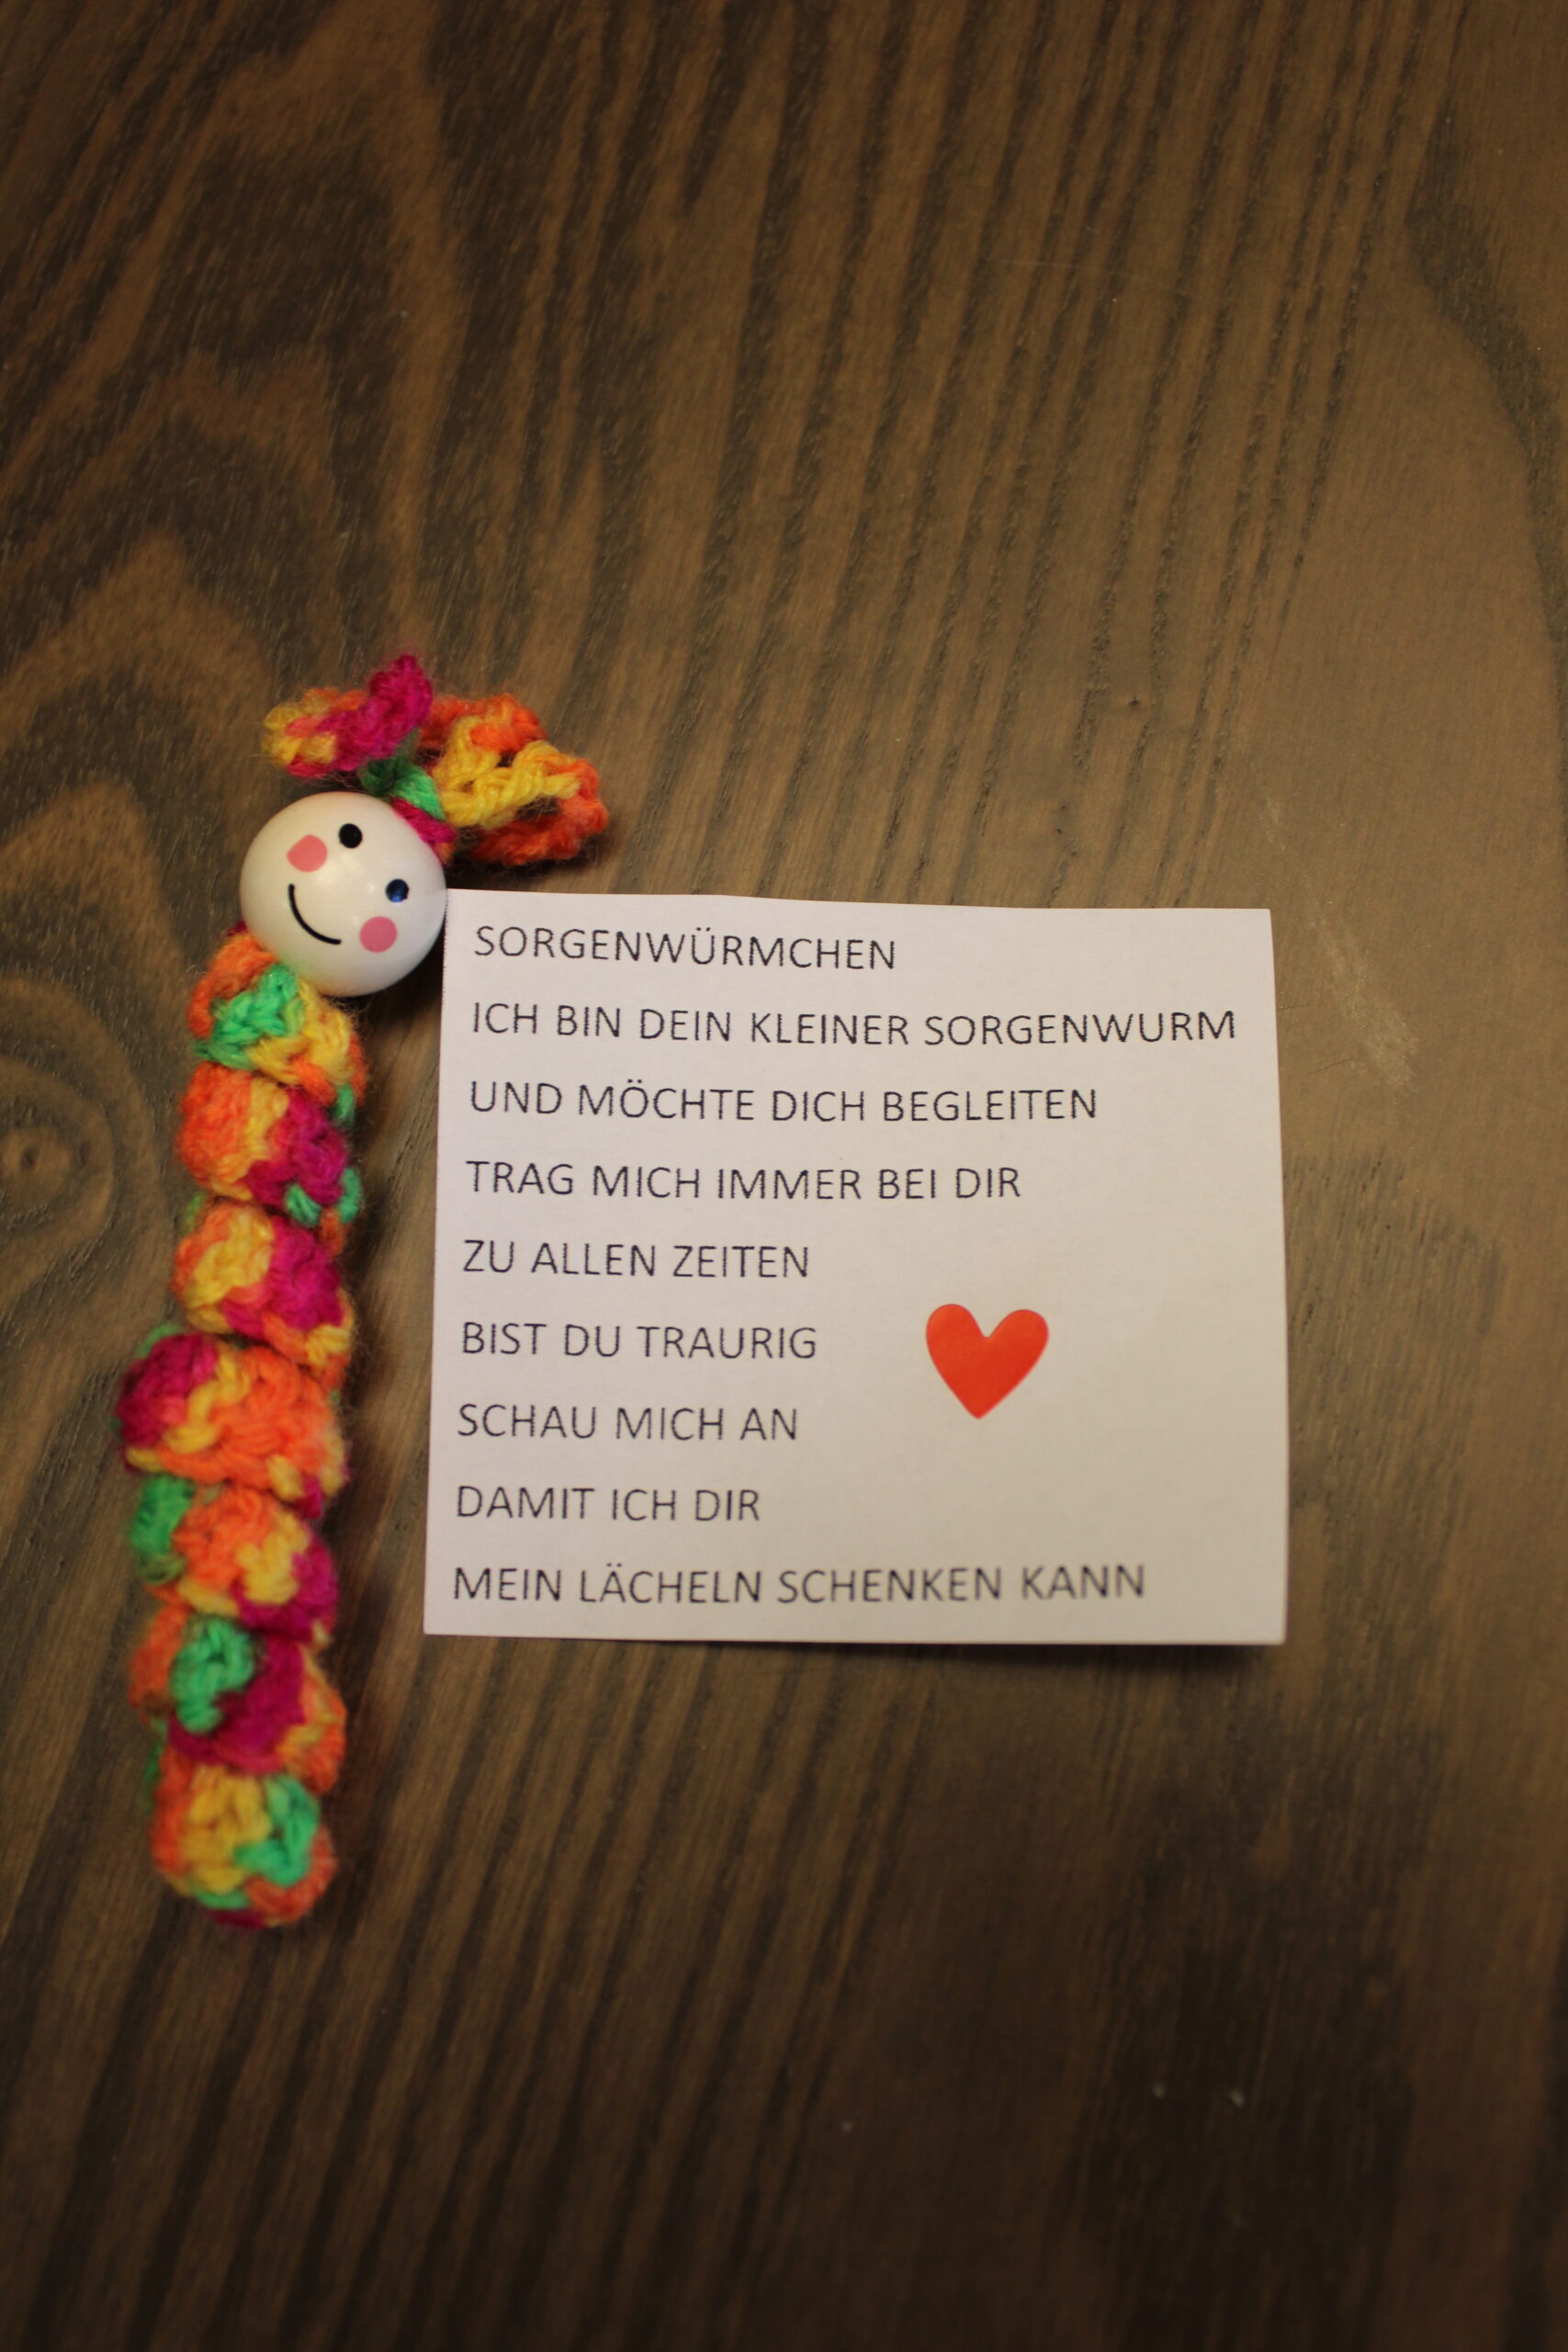 SORGENWÜRMCHEN
ICH BIN DEIN KLEINER SORGENWURM
UND MÖCHTE DICH BEGLEITEN
TRAG MICH IMMER BEI DIR
ZU ALLEN ZEITEN
BIST DU TRAURIG
SCHAU MICH AN
DAMIT ICH DIR
MEIN LÄCHELN SCHENKEN KANN